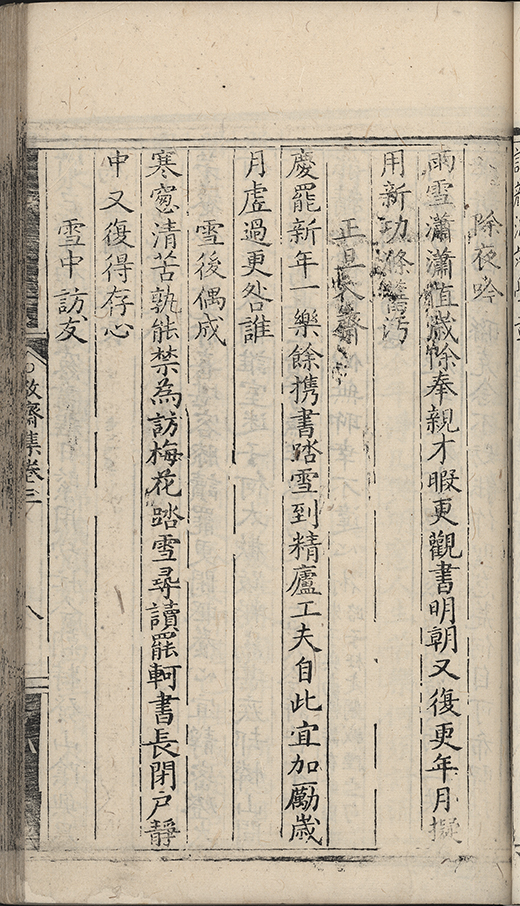 除夜吟
雨雪瀟瀟值歲除奉親才暇更觀書明朝又復更年月擬
用新功滌舊汚
正旦入齋
慶罷新年一樂餘携書踏雪到精廬工夫自此宜加勵歲
月虛過更咎誰
雪後偶成
寒窻清苦孰能禁為訪梅花踏雪尋讀罷軻書長閉戶靜
中又復得存心
雪中訪友
敬齋集卷三
八